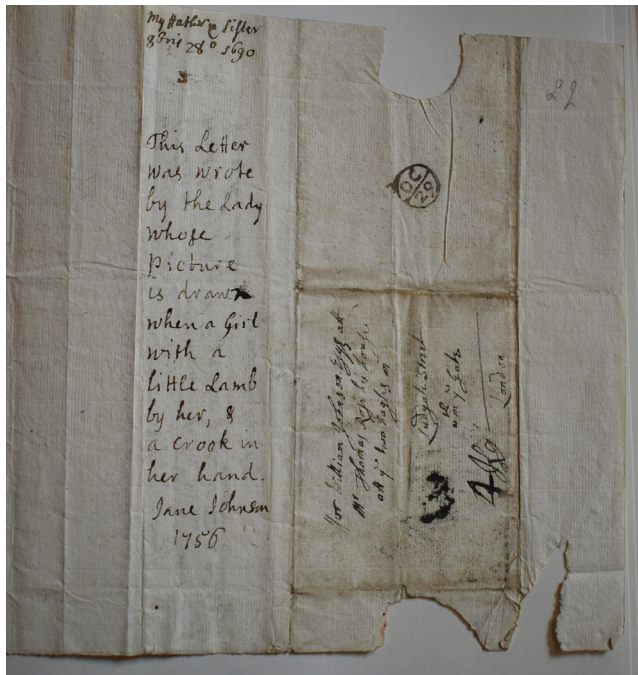 My Father & Sister
8bris 28º 1690
This Letter
was wrote
by the Lady
whose
Picture
is drawn
when a Girl
with a
little Lamb
by her, &
a crook in
her hand.
Jane Johnson
1756
OC
29
For William Johnson Esqr at
Mr Thomas his house
att ye two Eagles in
Ludgate Street
ye Gate
London